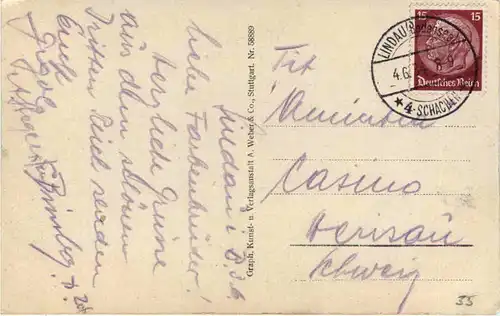 Lindau i. B. 3.6
Liebe Farbenbrüder!
Herzliche Grüsse
aus dem schönen
Dritten Reich senden
Euch
Graph. Kunst- u. Verlagsanstalt A. Weber & Co., Stuttgart. Nr. 58889
15 15
Deutsches Reich
LINDAU (BODENSEE)
4.6.
* 4-SCHACHEN
Tit
Amicitia
Casino
Herisau
Schweiz
55